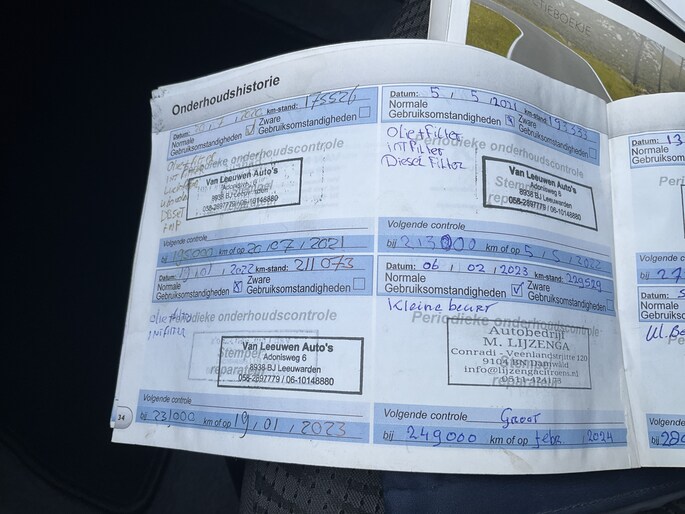 TIEBOEKJE
Onderhoudshistorie
Datum: 7 2020 km-stand: 175526
Normale Gebruiksomstandigheden Zware Gebruiksomstandigheden
Periodieke onderhoudscontrole
Van Leeuwen Auto's
Adonisweg 6
8938 BJ Leeuwarden
058-2897779 / 06-10148880
Volgende controle
bij 195000 km of op 20/07/2021
Datum: 5/5/2021 km-stand: 193333
Normale Gebruiksomstandigheden Zware Gebruiksomstandigheden
Olie+Filter
INTFilter
Diesel Filter
Periodieke onderhoudscontrole
Van Leeuwen Auto's
Adonisweg 6
8938 BJ Leeuwarden
058-2897779 / 06-10148880
Volgende controle
bij 213000 km of op 5/5/2022
Datum: 19/01/2022 km-stand: 211073
Normale Gebruiksomstandigheden Zware Gebruiksomstandigheden
Periodieke onderhoudscontrole
Stempel
Van Leeuwen Auto's
Adonisweg 6
8938 BJ Leeuwarden
058-2897779 / 06-10148880
Volgende controle
bij 231000 km of op 19/01/2023
34
Datum: 06/02/2023 km-stand: 229529
Normale Gebruiksomstandigheden Zware Gebruiksomstandigheden
Kleine beurt
Periodieke onderhoudscontrole
Autobedrijf
M. LIJZENGA
Conradi - Veenlandstrjitte 120
9104 BN Damwald
info@lijzengacitroen.nl
Volgende controle Groot
bij 249000 km of op febr. 2024
Datum: 13
Normale
Gebruiksom
Volgende
bij 27
Datum: 5
Normale
Gebruiksc
Kl. Be
Volgende